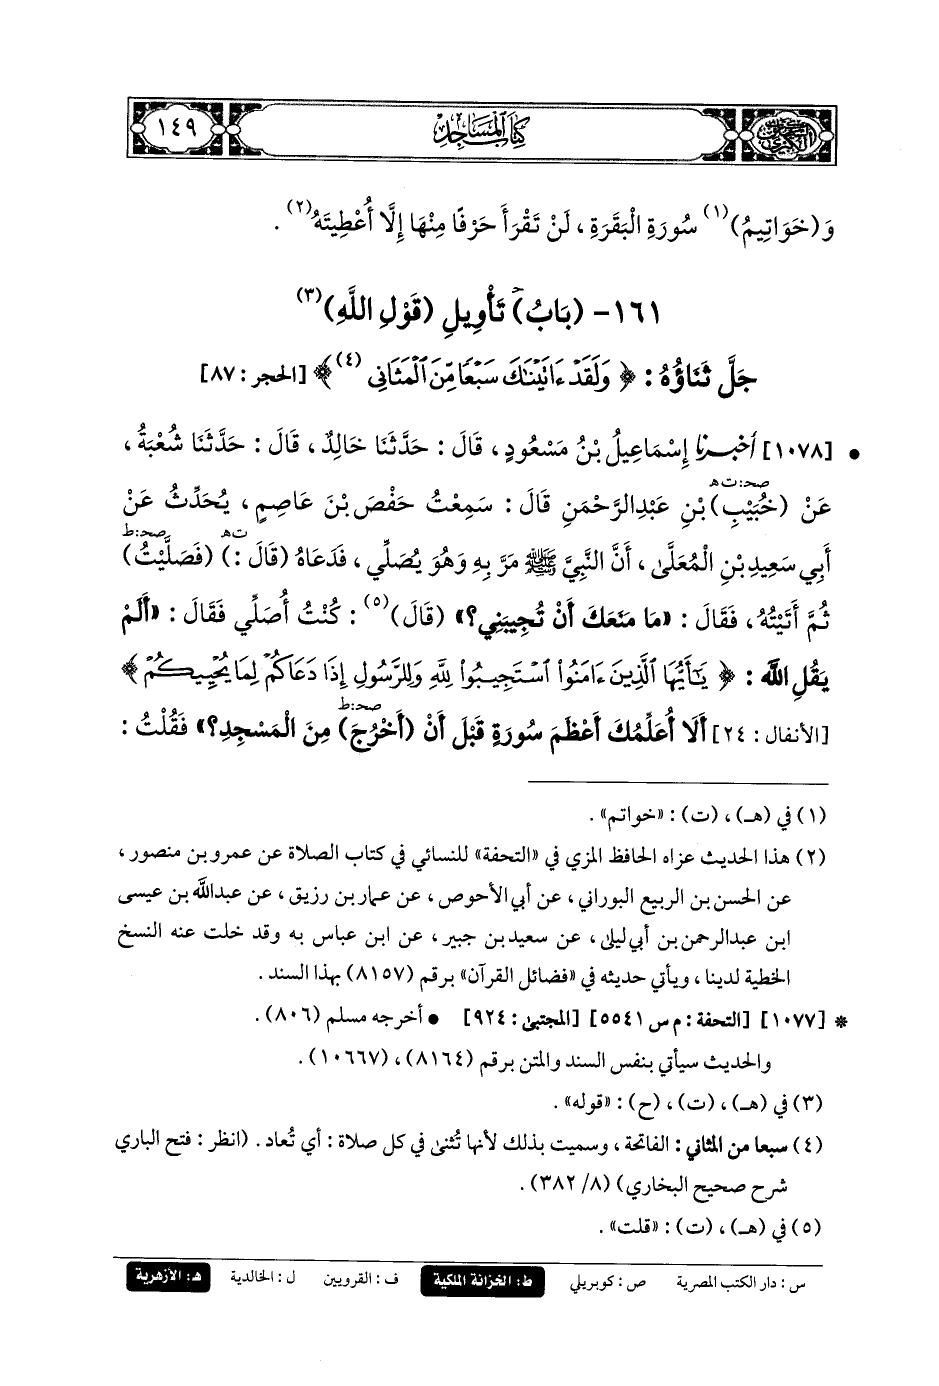 كتاب المساجد
١٤٩
وَ(خَوَاتِيمُ)(١) سُورَةِ الْبَقَرَةِ ، لَنْ تَقْرَأَ حَرْفًا مِنْهَا إِلَّا أُعْطِيتَهُ(٢) .
١٦١- (بَابُ) تَأْوِيلِ (قَوْلِ اللَّهِ)(٣)
جَلَّ ثَنَاؤُهُ : ﴿ وَلَقَدْ ءَاتَيْنَـٰكَ سَبْعًا مِّنَ ٱلْمَثَانِى (٤) ﴾ [الحجر : ٨٧]
• [١٠٧٨] أخبرنا إِسْمَاعِيلُ بْنُ مَسْعُودٍ ، قَالَ : حَدَّثَنَا خَالِدٌ ، قَالَ : حَدَّثَنَا شُعْبَةُ ،
صحـ : ت هـ
عَنْ (خُبَيْبِ) بْنِ عَبْدِالرَّحْمَنِ قَالَ : سَمِعْتُ حَفْصَ بْنَ عَاصِمٍ ، يُحَدِّثُ عَنْ
ت هـ صحـ : ط
أَبِي سَعِيدِ بْنِ الْمُعَلَّى ، أَنَّ النَّبِيَّ ﷺ مَرَّ بِهِ وَهُوَ يُصَلِّي ، فَدَعَاهُ (قَالَ :) (فَصَلَّيْتُ)
ثُمَّ أَتَيْتُهُ ، فَقَالَ : «مَا مَنَعَكَ أَنْ تُجِيبَنِي؟» (قَالَ)(٥) : كُنْتُ أُصَلِّي فَقَالَ : «أَلَمْ
يَقُلِ اللَّهُ : ﴿ يَـٰٓأَيُّهَا ٱلَّذِينَ ءَامَنُوا۟ ٱسْتَجِيبُوا۟ لِلَّهِ وَلِلرَّسُولِ إِذَا دَعَاكُمْ لِمَا يُحْيِيكُمْ ﴾
صحـ : ط
[الأنفال : ٢٤] أَلَا أُعَلِّمُكَ أَعْظَمَ سُورَةٍ قَبْلَ أَنْ (أَخْرُجَ) مِنَ الْمَسْجِدِ؟» فَقُلْتُ :
(١) في (هـ) ، (ت) : «خواتم» .
(٢) هذا الحديث عزاه الحافظ المزي في «التحفة» للنسائي في كتاب الصلاة عن عمرو بن منصور ،
عن الحسن بن الربيع البوراني ، عن أبي الأحوص ، عن عمار بن رزيق ، عن عبدالله بن عيسى
ابن عبدالرحمن بن أبي ليلى ، عن سعيد بن جبير ، عن ابن عباس به وقد خلت عنه النسخ
الخطية لدينا ، ويأتي حديثه في «فضائل القرآن» برقم (٨١٥٧) بهذا السند .
* [١٠٧٧] [التحفة : م س ٥٥٤١] [المجتبى : ٩٢٤] • أخرجه مسلم (٨٠٦) .
والحديث سيأتي بنفس السند والمتن برقم (٨١٦٤) ، (١٠٦٦٧) .
(٣) في (هـ) ، (ت) ، (ح) : «قوله» .
(٤) سبعا من المثاني : الفاتحة ، وسميت بذلك لأنها تُثنى في كل صلاة : أي تُعاد . (انظر : فتح الباري
شرح صحيح البخاري) (٨/ ٣٨٢) .
(٥) في (هـ) ، (ت) : «قلت» .
س : دار الكتب المصرية ص : كوبريلي ط : الخزانة الملكية ف : القرويين ل : الخالدية هـ : الأزهرية